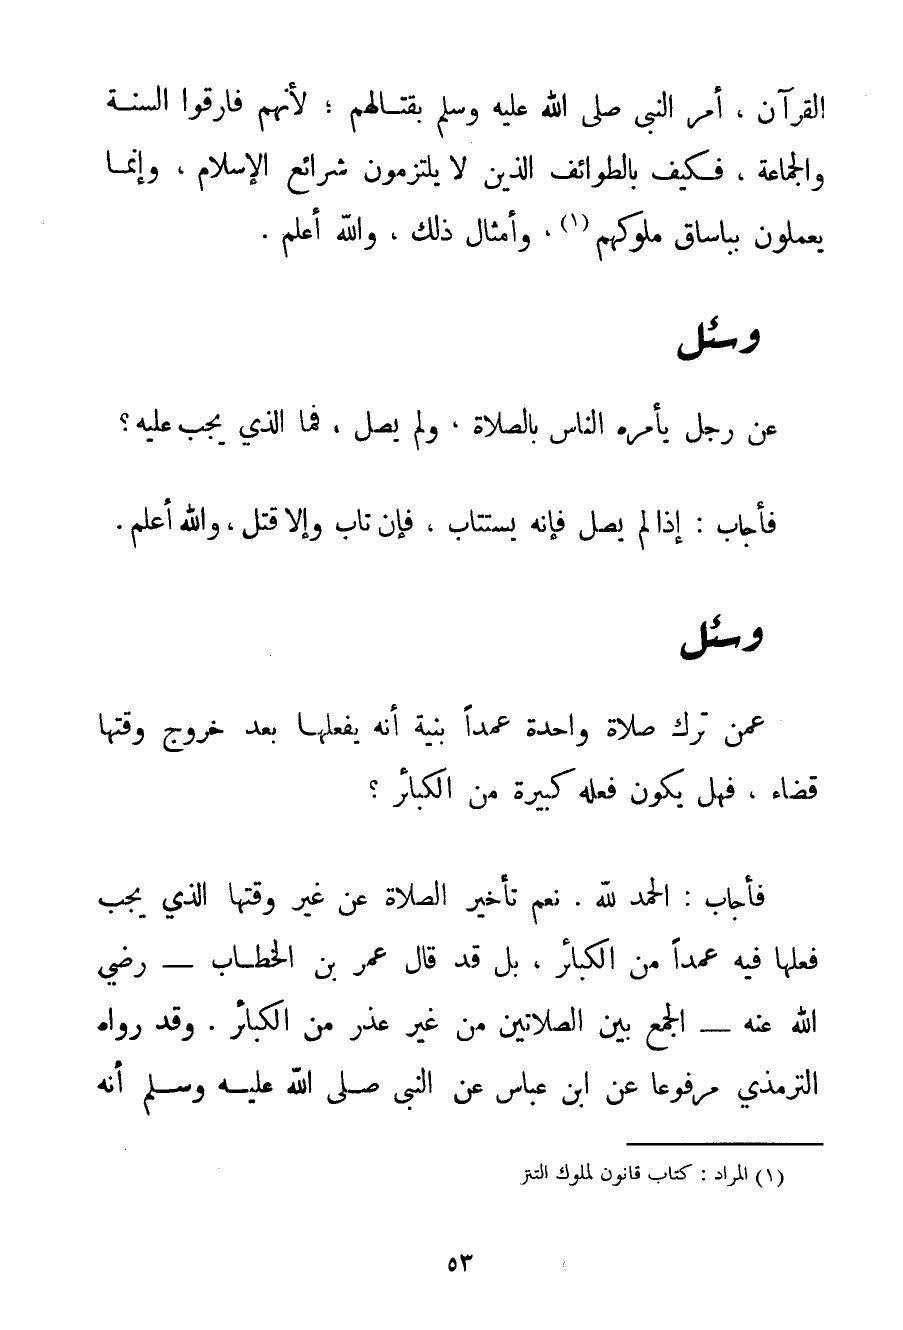 القرآن ، أمر النبي صلى الله عليه وسلم بقتالهم ؛ لأنهم فارقوا السنة
والجماعة ، فكيف بالطوائف الذين لا يلتزمون شرائع الإسلام ، وإنما
يعملون بباساق ملوكهم (١) ، وأمثال ذلك ، والله أعلم .
وسئل
عن رجل يأمره الناس بالصلاة ، ولم يصل ، فما الذي يجب عليه ؟
فأجاب : إذا لم يصل فإنه يستتاب ، فإن تاب وإلا قتل ، والله أعلم .
وسئل
عمن ترك صلاة واحدة عمداً بنية أنه يفعلها بعد خروج وقتها
قضاء ، فهل يكون فعله كبيرة من الكبائر ؟
فأجاب : الحمد لله . نعم تأخير الصلاة عن غير وقتها الذي يجب
فعلها فيه عمداً من الكبائر ، بل قد قال عمر بن الخطاب — رضي
الله عنه — الجمع بين الصلاتين من غير عذر من الكبائر . وقد رواه
الترمذي مرفوعا عن ابن عباس عن النبي صلى الله عليه وسلم أنه
(١) المراد : كتاب قانون لملوك التتر
٥٣